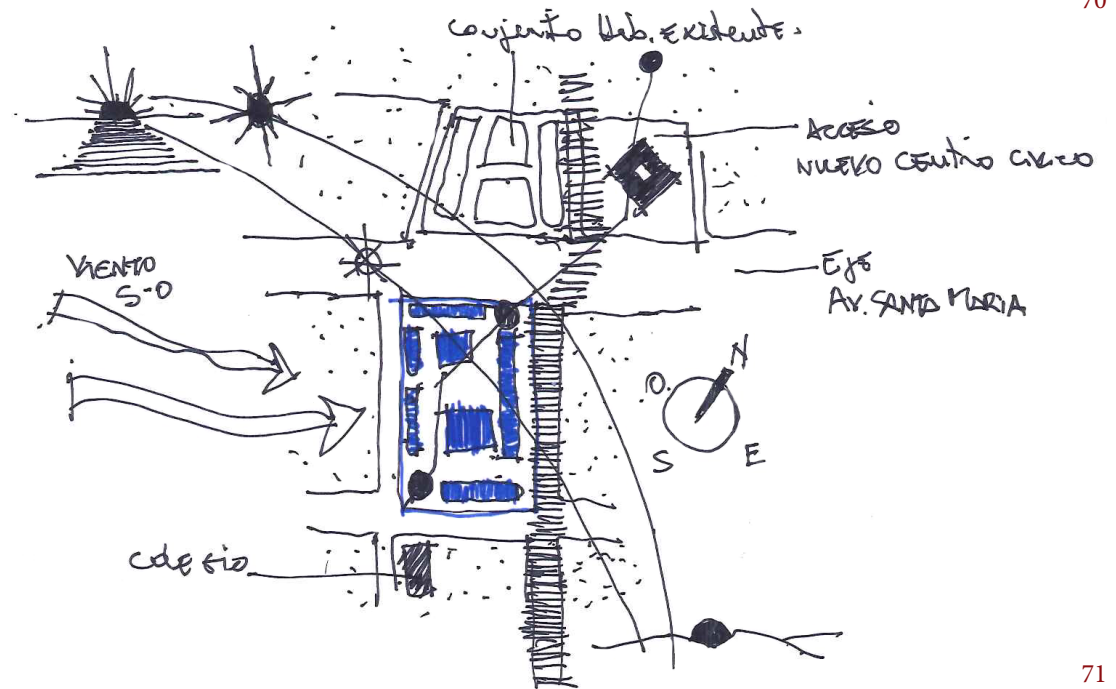 70
Conjunto Hab. Existente.
ACCESO
NUEVO CENTRO CIVICO
VIENTO
S-O
EJE
AV. SANTA MARIA
N
O.
S
E
COLEGIO
71